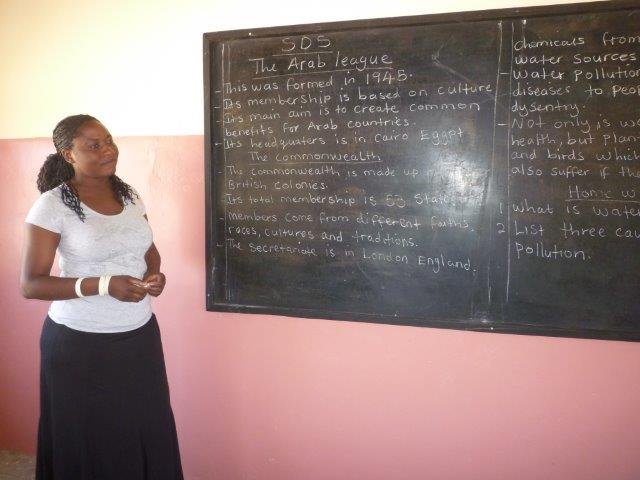 SDS
The Arab league
- This was formed in 1945.
- Its membership is based on culture
- Its main aim is to create common
benefits for Arab countries.
- Its headquaters is in Cairo Egypt
The Commonwealth
- The commonwealth is made up
British Colonies.
- Its total membership is 53 States
- Members come from different faiths,
races, cultures and traditions.
- The secretariate is in London England.
chemicals from
water sources
- Water pollution
diseases to peop
dysentry.
- Not only is wa
health, but plan
and birds which
also suffer if the
Home w
1 What is wate
2 List three cau
pollution.